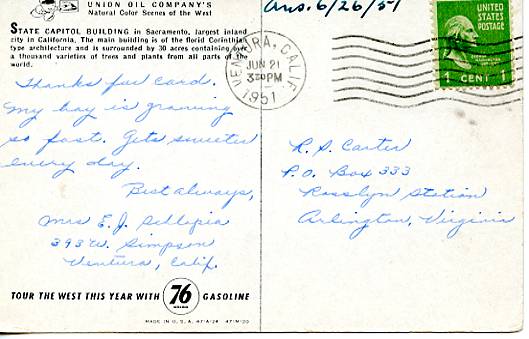 UNION OIL COMPANY'S
Natural Color Scenes of the West
STATE CAPITOL BUILDING in Sacramento, largest inland
city in California. The main building is of the florid Corinthian
type architecture and is surrounded by 30 acres containing
a thousand varieties of trees and plants from all parts of the
world.
Ans. 6/26/51
VENTURA, CALIF.
JUN 21
3 30 PM
1951
UNITED
STATES
POSTAGE
1 CENT 1
Thanks for card.
My boy is growing
so fast. Gets sweeter
every day.
Best always,
Mrs E. J.
393 W. Simpson
Ventura, Calif.
R. S. Carter
P.O. Box 333
Rosslyn Station
Arlington, Virginia
TOUR THE WEST THIS YEAR WITH 76 GASOLINE
MADE IN U.S.A.